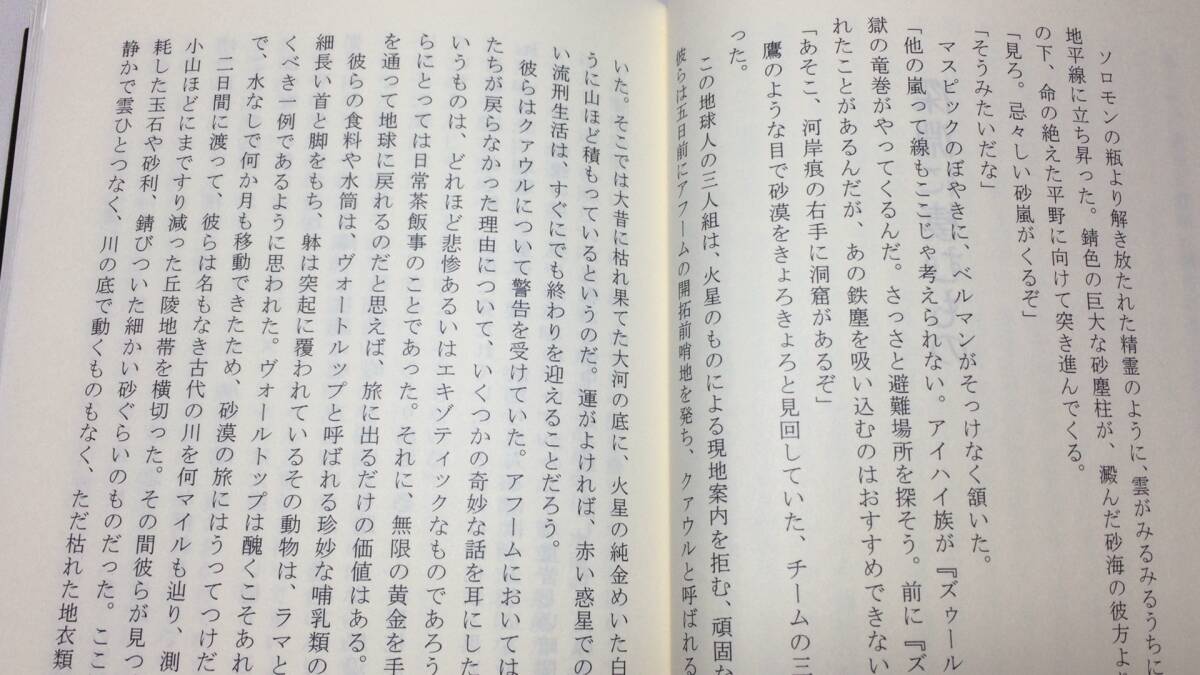 ソロモンの瓶より解き放たれた精霊のように、雲がみるみるうちに
地平線に立ち昇った。錆色の巨大な砂塵柱が、澱んだ砂海の彼方より
の下、命の絶えた平野に向けて突き進んでくる。
「見ろ。忌々しい砂嵐がくるぞ」
「そうみたいだな」
マスピックのぼやきに、ベルマンがそっけなく頷いた。
「他の嵐って線もここじゃ考えられない。アイハイ族が『ズゥール
獄の竜巻がやってくるんだ。さっさと避難場所を探そう。前に『ズ
れたことがあるんだが、あの鉄塵を吸い込むのはおすすめできない
「あそこ、河岸痕の右手に洞窟があるぞ」
鷹のような目で砂漠をきょろきょろと見回していた、チームの三
った。
この地球人の三人組は、火星のものによる現地案内を拒む、頑固な
彼らは五日前にアフームの開拓前哨地を発ち、クァウルと呼ばれる
いた。そこでは大昔に枯れ果てた大河の底に、火星の純金めいた白
うに山ほど積もっているというのだ。運がよければ、赤い惑星での
い流刑生活は、すぐにでも終わりを迎えることだろう。
彼らはクァウルについて警告を受けていた。アフームにおいては
たちが戻らなかった理由について、いくつかの奇妙な話を耳にした
いうものは、どれほど悲惨あるいはエキゾティックなものであろう
らにとっては日常茶飯事のことであった。それに、無限の黄金を手
を通って地球に戻れるのだと思えば、旅に出るだけの価値はある。
彼らの食料や水筒は、ヴォートルップと呼ばれる珍妙な哺乳類の
細長い首と脚をもち、躰は突起に覆われているその動物は、ラマと
くべき一例であるように思われた。ヴォールトップは醜くこそあれ
で、水なしで何か月も移動できたため、砂漠の旅にはうってつけだ
二日間に渡って、彼らは名もなき古代の川を何マイルも辿り、測
小山ほどにまですり減った丘陵地帯を横切った。その間彼らが見つ
耗した玉石や砂利、錆びついた細かい砂ぐらいのものだった。ここ
静かで雲ひとつなく、川の底で動くものもなく、ただ枯れた地衣類